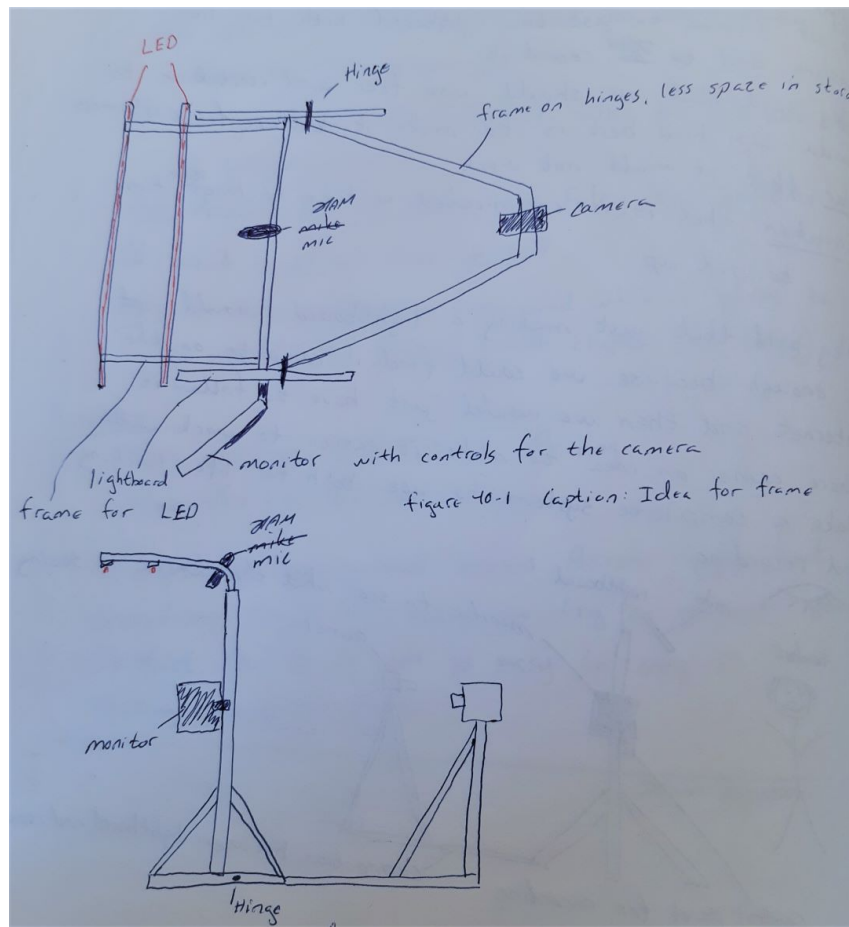 LED
Hinge
frame on hinges, less space in
camera
mike
mic
monitor with controls for the camera
lightboard
frame for LED
figure 40-1 Caption: Idea for frame
mike
mic
monitor
Hinge